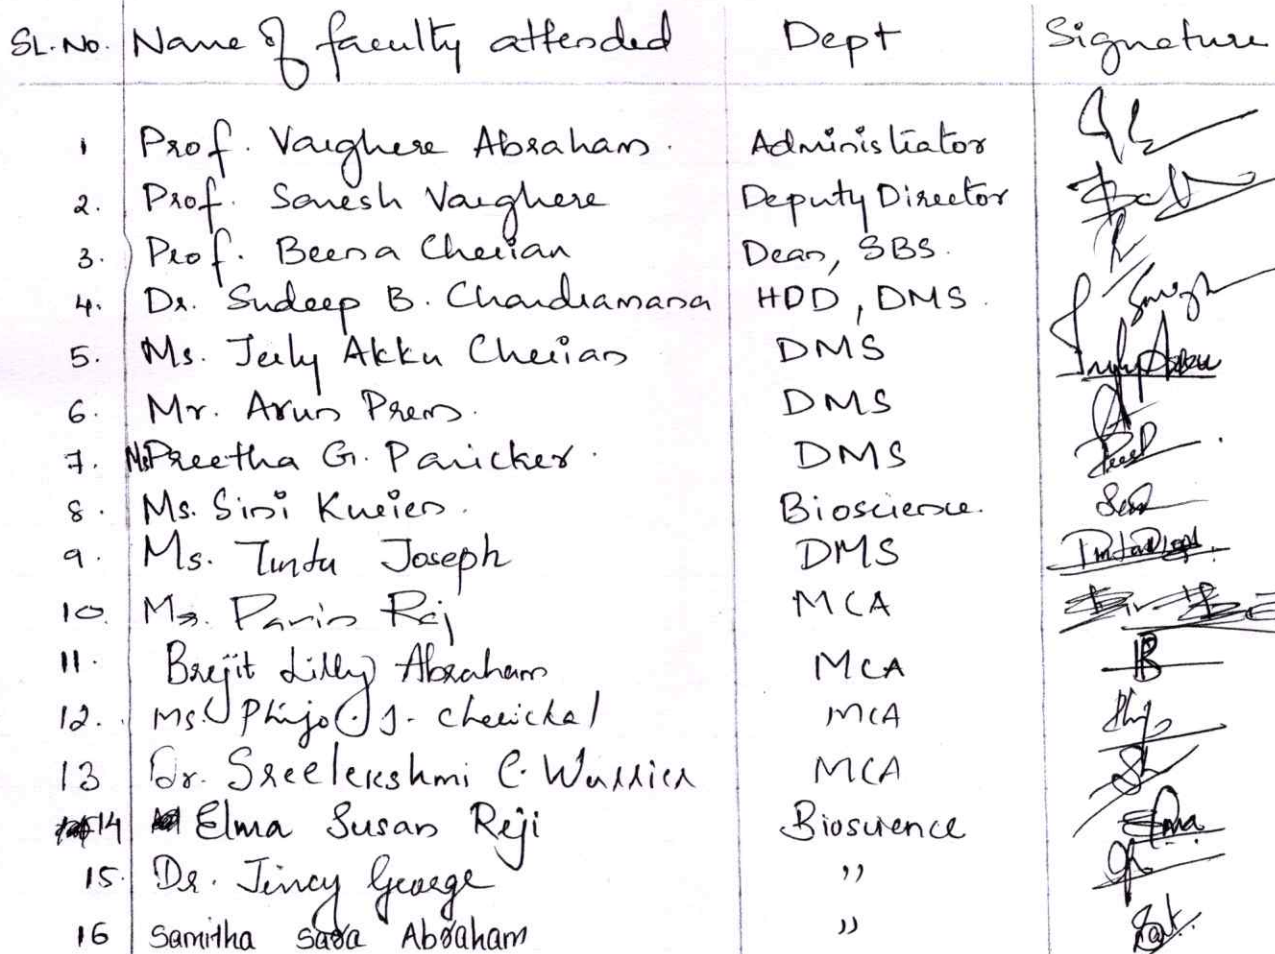 SL.No. Name of faculty attended Dept Signature
1 Prof. Varghese Abraham. Administrator
2. Prof. Sonesh Varghese Deputy Director
3. Prof. Beena Cherian Dean, SBS.
4. Dr. Sudeep B. Chandramana HDD, DMS.
5. Ms. Jerly Akku Cherian DMS
6. Mr. Arun Prem. DMS
7. Ms Preetha G. Panicker. DMS
8. Ms. Sini Kurien. Bioscience.
9. Ms. Tintu Joseph DMS
10. Raj MCA
11. Brejit Lilly Abraham MCA
12. Ms. Phijo J. Cherickal MCA
13 Dr. Sreelekshmi C. Warrier MCA
14 Elma Susan Reji Bioscience
15. Dr. Jincy George "
16 Samitha Sara Abraham "